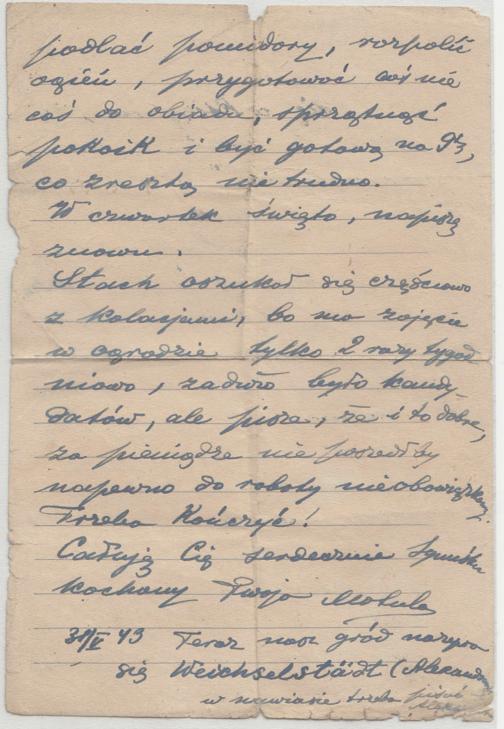 podlać pomidory, rozpalić
ogień, przygotować coś nie
coś do obiadu, sprzątnąć
pokoik i być gotową na 9tą,
co zresztą nie trudno.
W czwartek święto, napiszę
znowu.
Stach oszukał się częściowo
z kolacjami, bo ma zajęcie
w ogrodzie tylko 2 razy tygod
niowo, zadużo było kandy-
datów, ale pisze, że i to dobre,
za pieniądze nie poszedłby
napewno do roboty nieobowiązkowej.
Trzeba Kończyć!
Całuję Cię serdecznie Synuśku
kochany Twoja Matula
31/V 43 Teraz nasz gród nazywa
się Weichselstädt (Aleksandrów
w nawiasie trzeba pisać